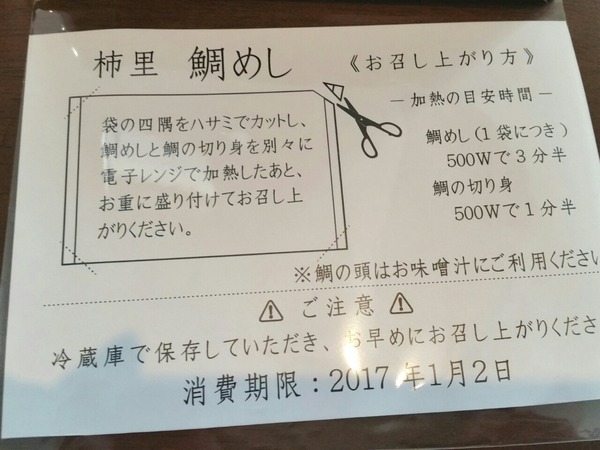 柿里 鯛めし
《お召し上がり方》
袋の四隅をハサミでカットし、
鯛めしと鯛の切り身を別々に
電子レンジで加熱したあと、
お重に盛り付けてお召し上
がりください。
― 加熱の目安時間 ―
鯛めし(1袋につき)
500Wで3分半
鯛の切り身
500Wで1分半
※鯛の頭はお味噌汁にご利用ください
⚠ ご注意 ⚠
冷蔵庫で保存していただき、お早めにお召し上がりくださ
消費期限:2017年1月2日